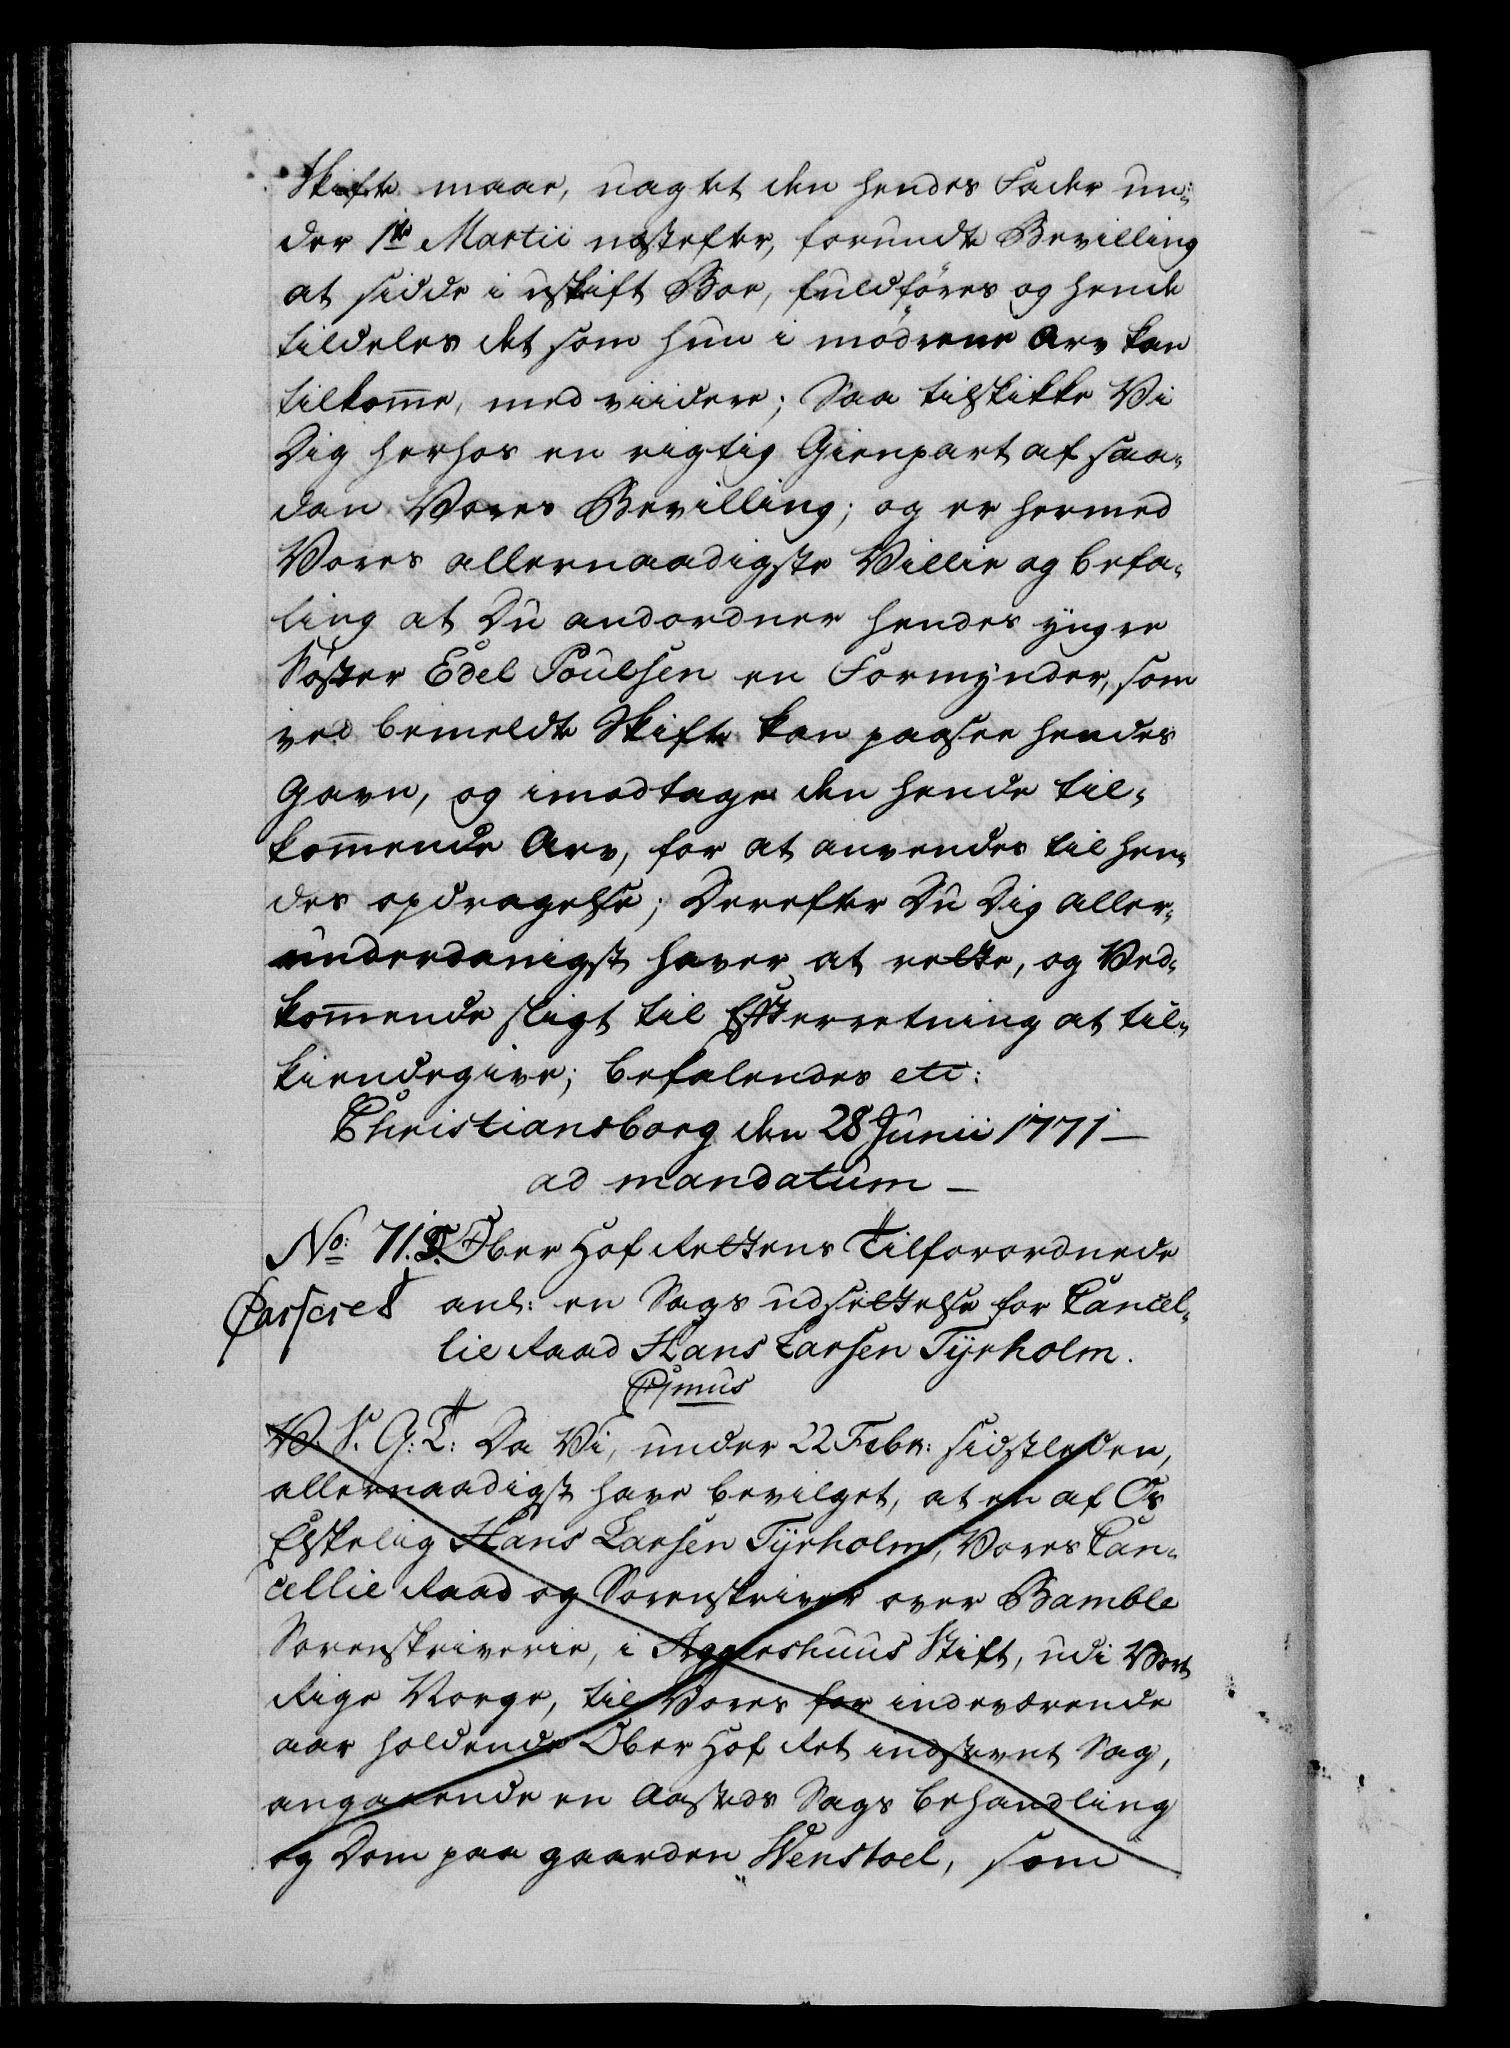 Skifte maae, uagtet den hendes Fader un-
der 1te Martii næstefter, forundte Bevilling
at sidde i uskift Boe, fuldføres og hende
tildeles det som hun i mødrene Arv kan
tilkom̄e, med viidere; Saa tilskikke Vi
Dig herhos en rigtig Gienpart af saa-
dan Vores Bevilling; og er hermed
Vores allernaadigste Villie og befa-
ling at Du andordner hendes yngre
Søster Edel Poulsen en Formynder, som
ved bemeldte Skifte kan paasee hendes
Gavn, og imodtage den hende til-
kom̄ende Arv, for at anvendes til hen-
des opdragelse; Derefter Du Dig aller-
underdanigst haver at rette, og Ved-
kom̄ende sligt til Efterretning at til-
kiendegive; befalendes etc:
Christiansborg den 28 Junii 1771 —
ad mandatum —
No: 71. T. Ober Hof Rettens Tilforordnede
Casseret anl: en Sags udsettelse for Cancel-
lie Raad Hans Larsen Tyrholm.
V. S. G: T: Da Vi, under 22 Febr: sidstleden,
allernaadigst have bevilget, at en af Os
Elskelig Hans Larsen Tyrholm, Vores Can-
cellie Raad og Sorenskriver over Bamble
Sorenskriverie, i Aggershuus Stift, udi Vort
Rige Norge, til Vores for indeværende
aar holdende Ober Hof Ret indstevnt Sag,
angaaende en Aasteds Sags behandling
og Dom paa gaarden Wenstoel, som